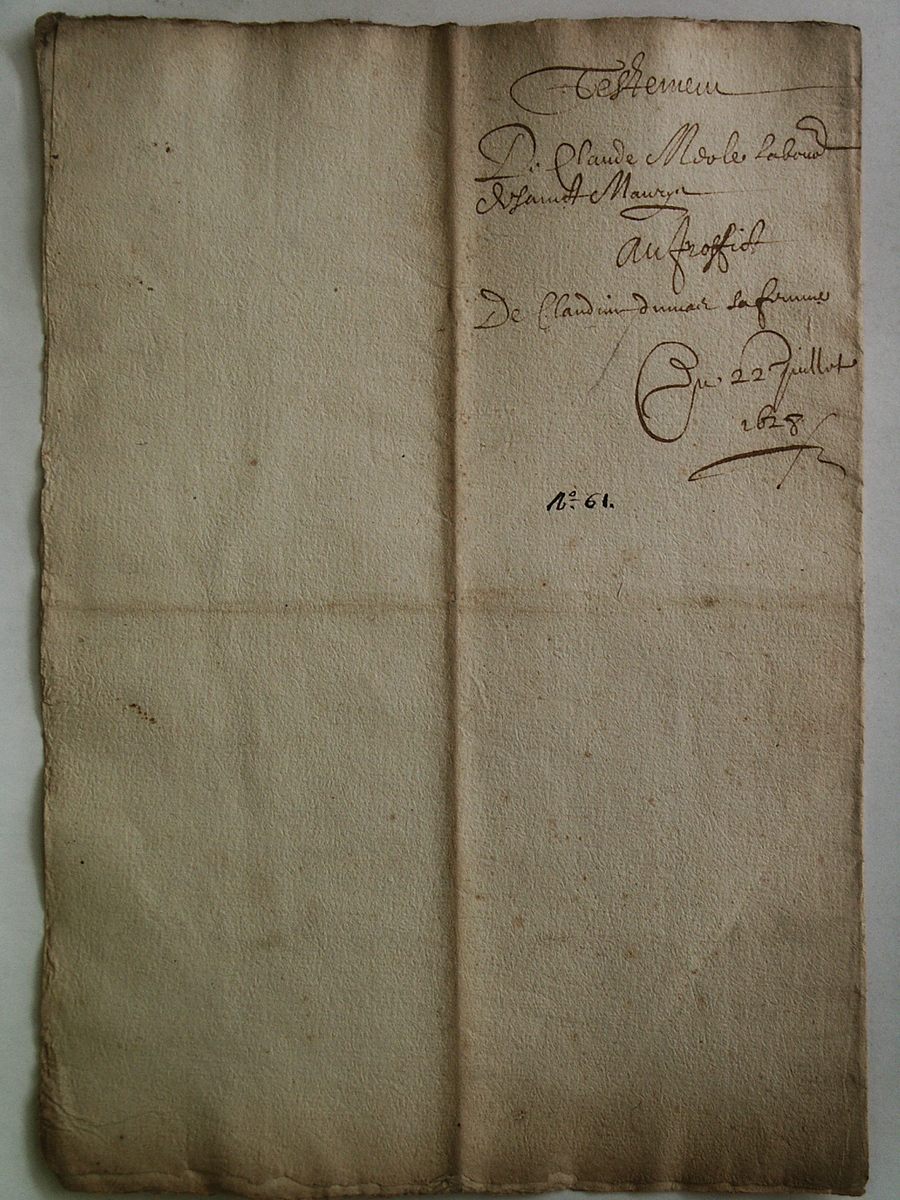 Testement
De Claude Merle labour
de sainct Mauryn
Au proffict
De Claudine dumas sa femme
Du 22 Juillet
1628
No. 61.